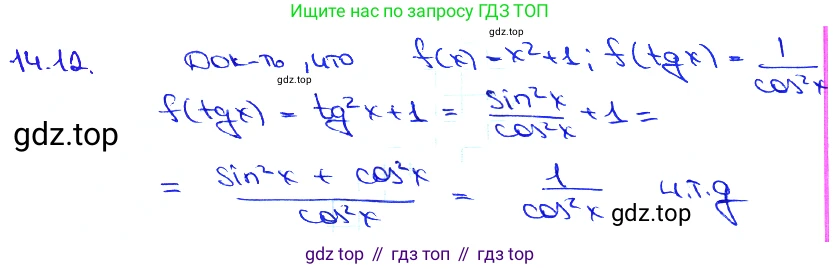 Ищите нас по запросу ГДЗ ТОП
14.12. Док-ть, что f(x) = x²+1; f(tgx) = 1/cos²x
gdz.top
gdz.top
f(tgx) = tg²x+1 = sin²x/cos²x + 1 =
gdz.top
= (sin²x + cos²x)/cos²x = 1/cos²x ч.т.д
gdz.top
gdz top // гдз топ // gdz top